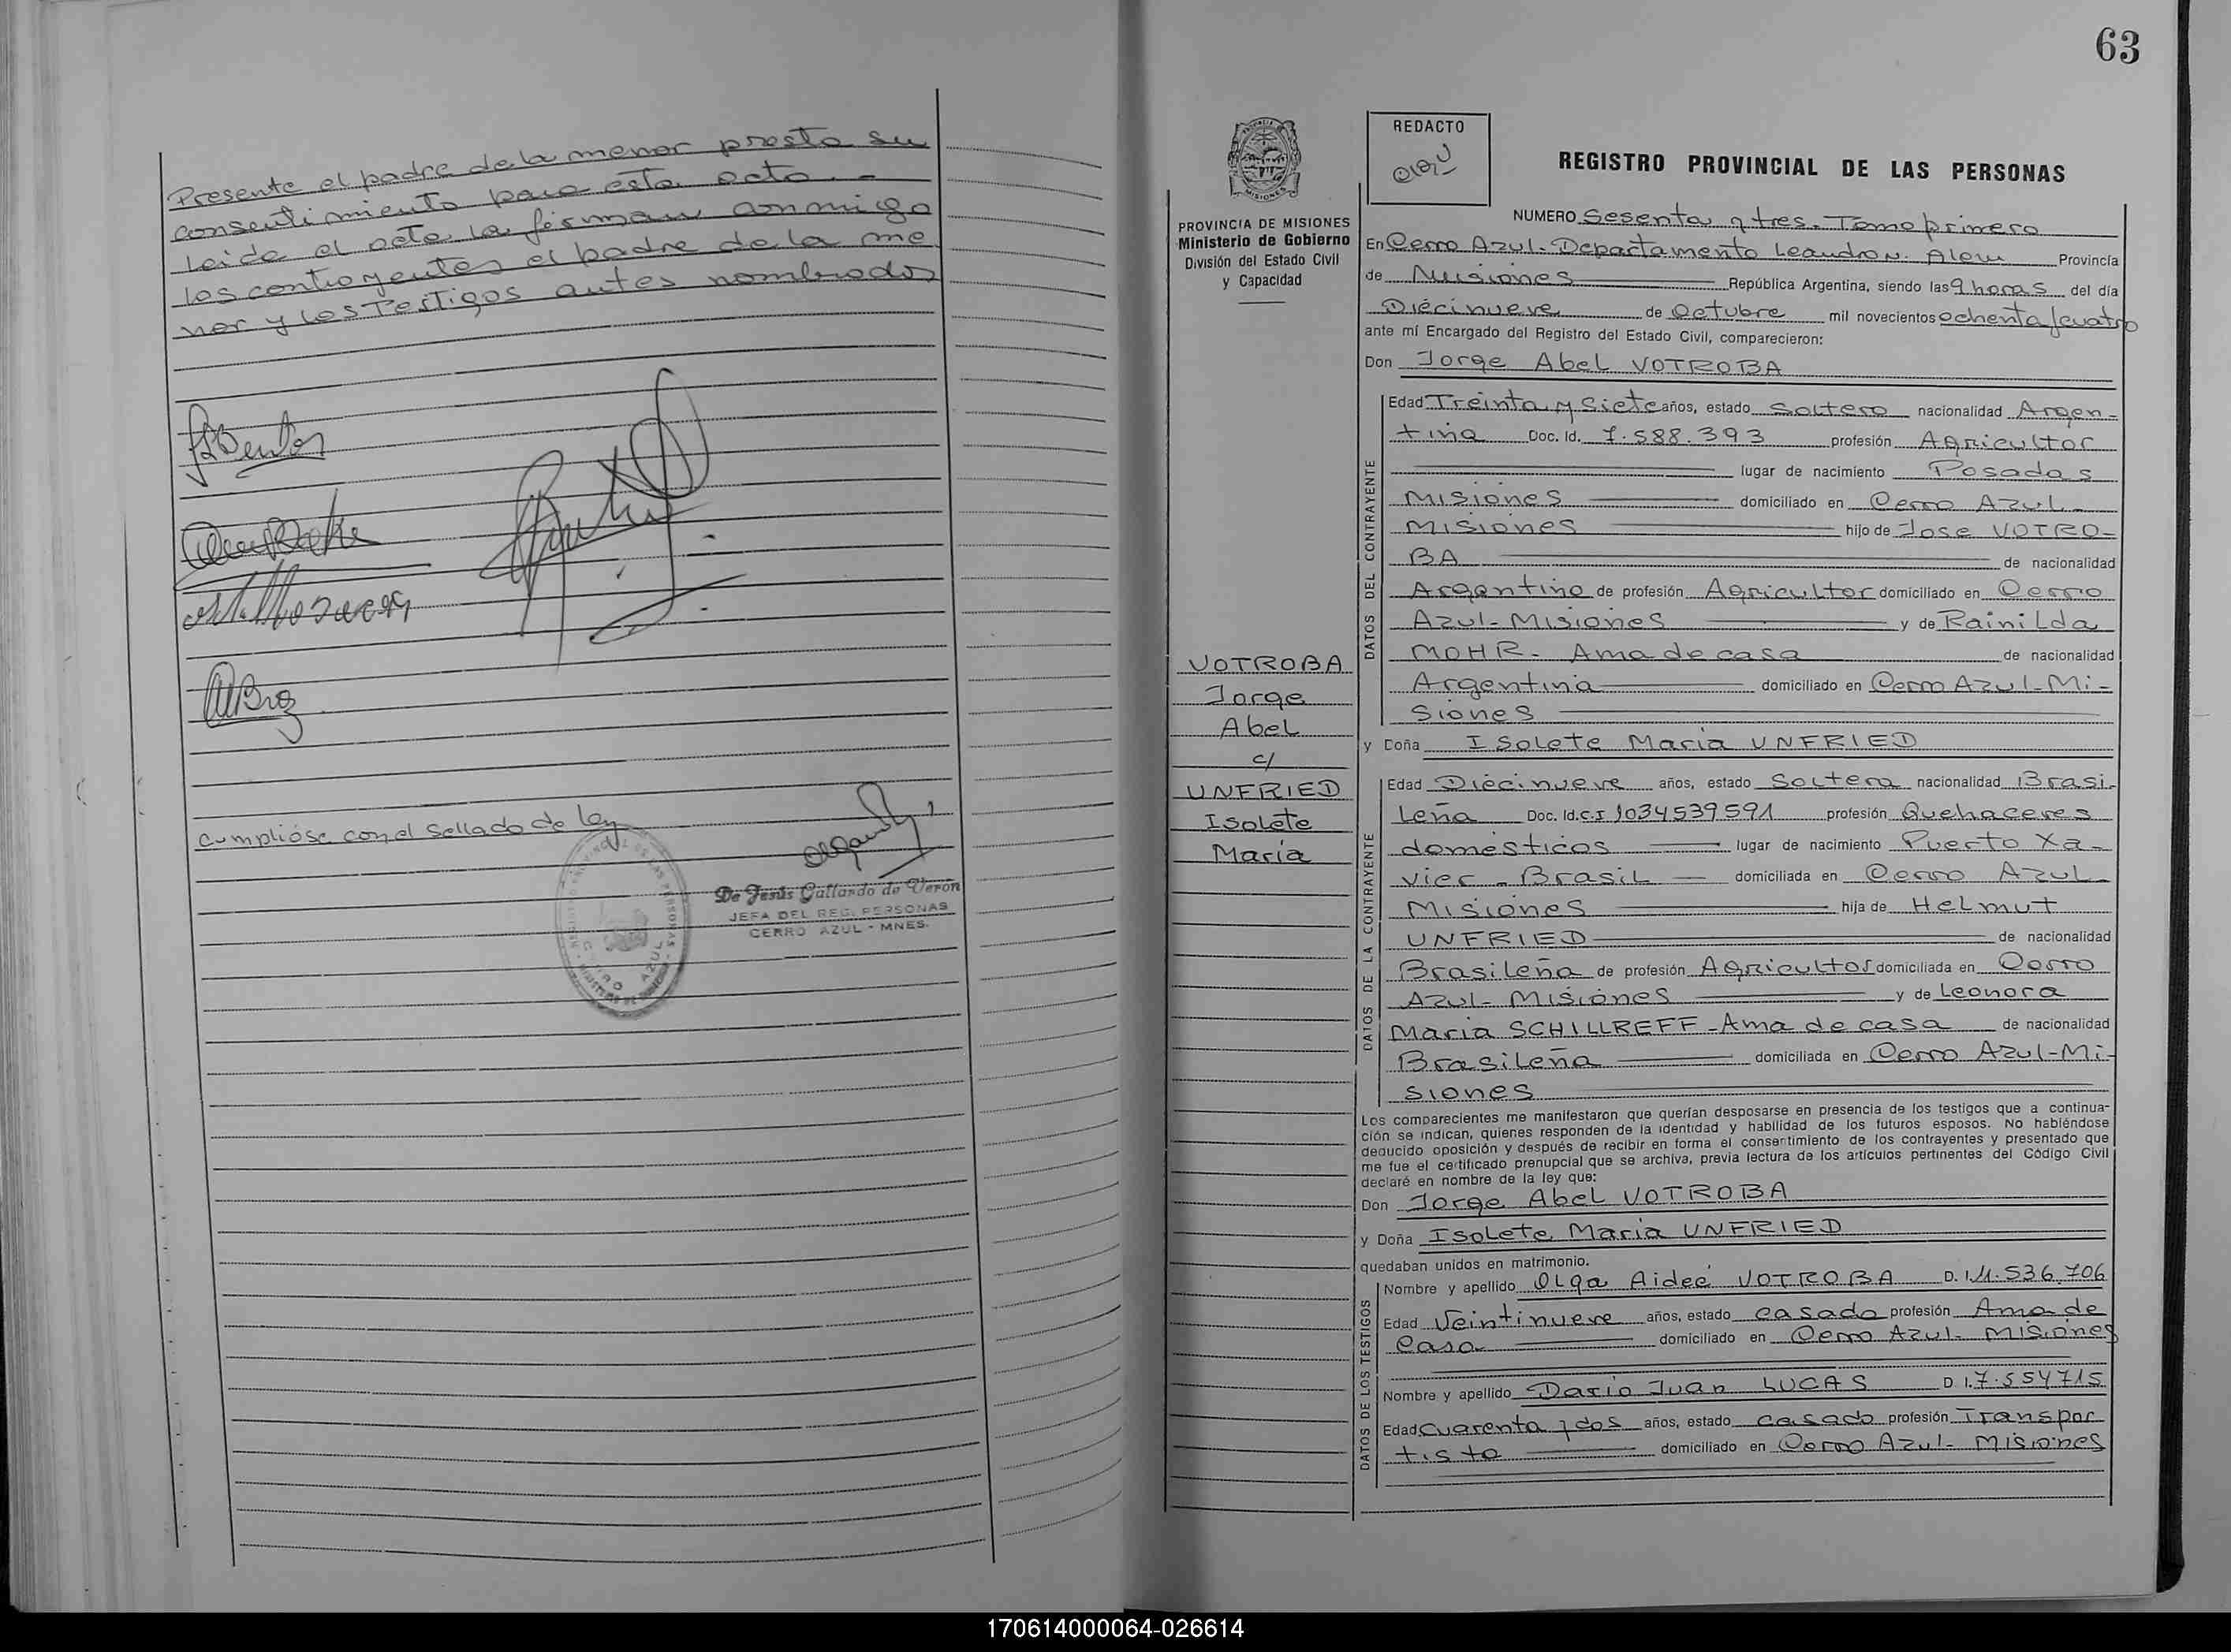 Presente el padre de la menor presta su
consentimiento para este acto. -
Leida el acta la firman conmigo
los contrayentes el padre de la me
nor y los Testigos antes nombrados
Cumplióse con el Sellado de ley
De Jesús Gallardo de Verón
JEFA DEL REG. PERSONAS
CERRO AZUL - MNES.
63
PROVINCIA DE MISIONES
Ministerio de Gobierno
División del Estado Civil
y Capacidad
VOTROBA
Jorge
Abel
c/
UNFRIED
Isolete
María
REDACTO
REGISTRO PROVINCIAL DE LAS PERSONAS
NUMERO Sesenta y tres. Tomo primero
En Cerro Azul-Departamento Leandro N. Alem Provincia
de Misiones República Argentina, siendo las 9 horas del día
Diecinueve de Octubre mil novecientos ochenta y cuatro
ante mí Encargado del Registro del Estado Civil, comparecieron:
Don Jorge Abel VOTROBA
DATOS DEL CONTRAYENTE
Edad Treinta y Siete años, estado Soltero nacionalidad Argen-
tina Doc. Id. 7.588.393 profesión Agricultor
lugar de nacimiento Posadas
Misiones domiciliado en Cerro Azul-
Misiones hijo de Jose VOTRO-
BA de nacionalidad
Argentino de profesión Agricultor domiciliado en Cerro
Azul-Misiones y de Rainilda
MOHR- Ama de casa de nacionalidad
Argentina domiciliado en Cerro Azul-Mi-
siones
y Doña Isolete Maria UNFRIED
DATOS DE LA CONTRAYENTE
Edad Diecinueve años, estado Soltera nacionalidad Brasi-
leña Doc. Id. C.I 1034539591 profesión Quehaceres
domésticos lugar de nacimiento Puerto Xa-
vier - Brasil domiciliada en Cerro Azul-
Misiones hija de Helmut
UNFRIED de nacionalidad
Brasileña de profesión Agricultor domiciliada en Cerro
Azul-Misiones y de Leonora
Maria SCHILLREFF-Ama de casa de nacionalidad
Brasileña domiciliada en Cerro Azul-Mi-
siones
Los comparecientes me manifestaron que querían desposarse en presencia de los testigos que a continua-
ción se indican, quienes responden de la identidad y habilidad de los futuros esposos. No habiéndose
deducido oposición y después de recibir en forma el consentimiento de los contrayentes y presentado que
me fue el certificado prenupcial que se archiva, previa lectura de los artículos pertinentes del Código Civil
declaré en nombre de la ley que:
Don Jorge Abel VOTROBA
y Doña Isolete Maria UNFRIED
quedaban unidos en matrimonio.
DATOS DE LOS TESTIGOS
Nombre y apellido Olga Aideé VOTROBA D. I. 11.536.706
Edad Veintinueve años, estado casado profesión Ama de
Casa domiciliado en Cerro Azul- Misiones
Nombre y apellido Dario Juan LUCAS D I. 7.554715
Edad Cuarenta y dos años, estado casado profesión Transpor
tista domiciliado en Cerro Azul- Misiones
170614000064-026614